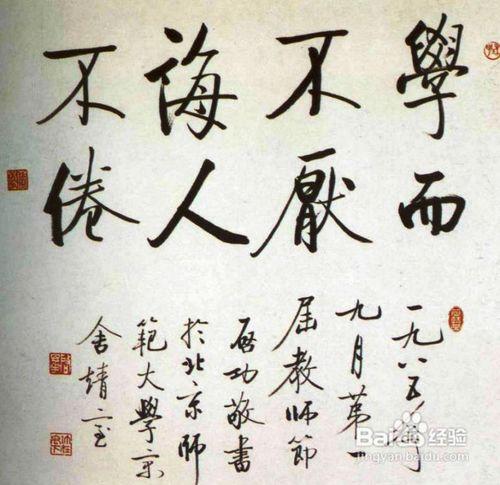 學而
不厭
誨人
不倦
一九八五年
九月第一
屆教師節
啟功敬書
於北京師
範大學宿
舍
Baidu经验
jingyan.baidu.com